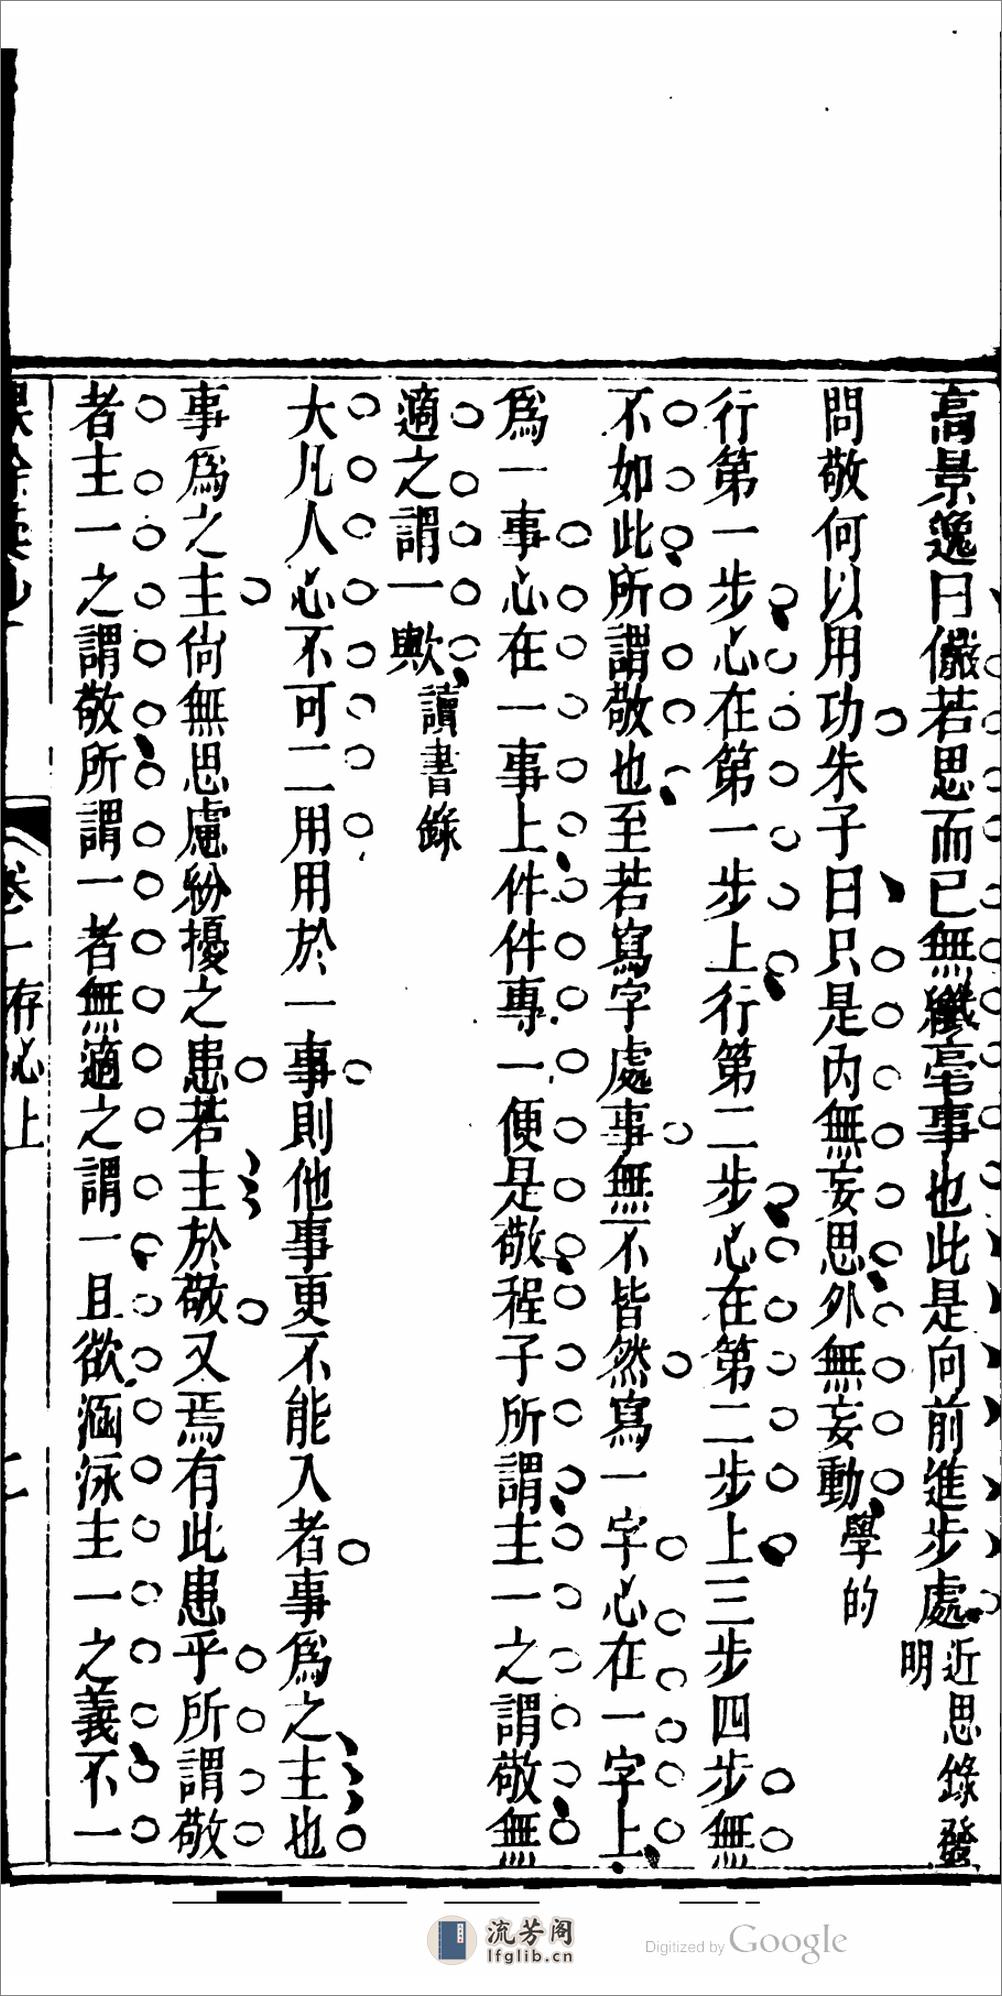 高景逸曰儼若思而已無纎毫事也此是向前進步處近思錄發明
問敬何以用功朱子曰只是內無妄思外無妄動學的
行第一步心在第一步上行第二步心在第二步上三步四步無
不如此所謂敬也至若寫字處事無不皆然寫一字心在一字上
爲一事心在一事上件件專一便是敬程子所謂主一之謂敬無
適之謂一歟讀書錄
大凡人心不可二用用於一事則他事更不能入者事爲之主也
事爲之主尙無思慮紛擾之患若主於敬又焉有此患乎所謂敬
者主一之謂敬所謂一者無適之謂一且欲涵泳主一之義不一
卷一存心上
流芳阁
lfglib.cn
Digitized by Google